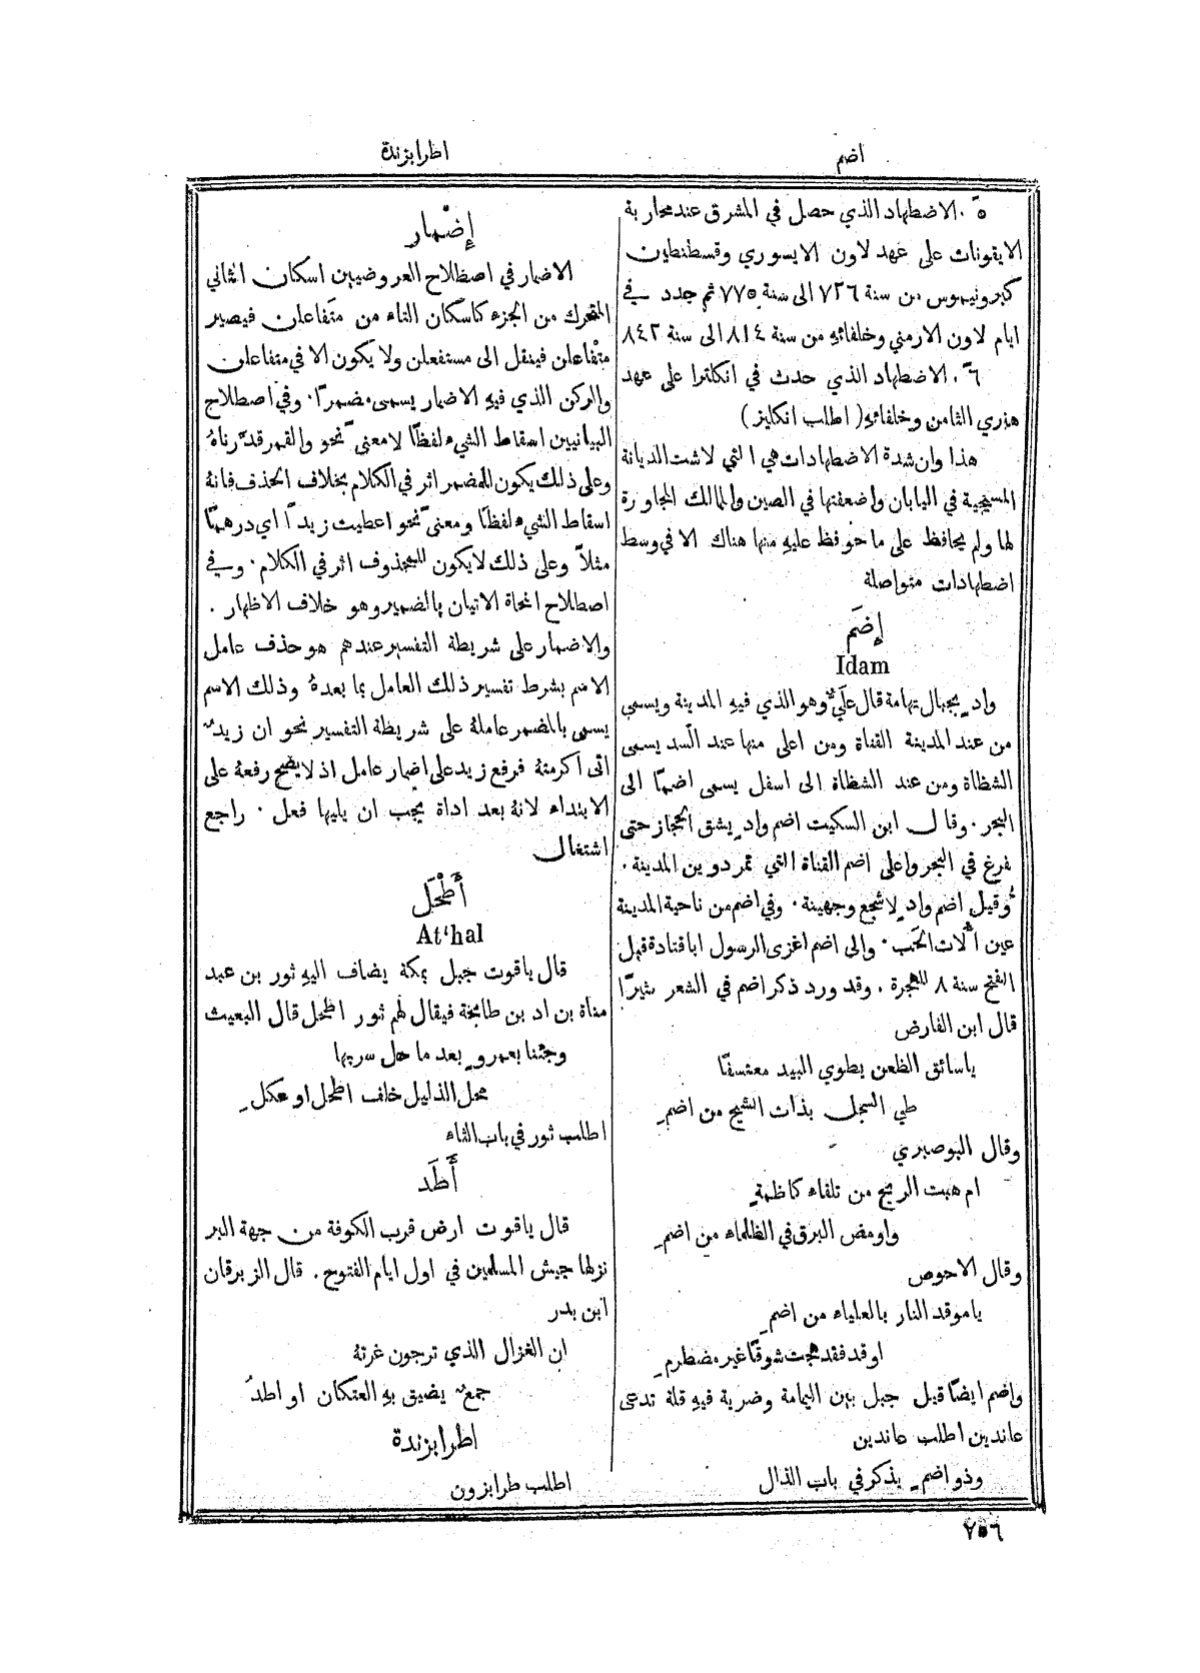 اضم
اطرابزندة
٥ً. الاضطهاد الذي حصل في المشرق عند محاربة
الايقونات على عهد لاون الايسوري وقسطنطين
كبرونيموس من سنة ٧٢٦ الى سنة ٧٧٥ ثم جدد في
ايام لاون الارمني وخلفائهِ من سنة ٨١٤ الى سنة ٨٤٢
٦ً. الاضطهاد الذي حدث في انكلترا على عهد
هنري الثامن وخلفائهِ (اطلب انكليز)
هذا وان شدة الاضطهادات هي التي لاشت الديانة
المسيحية في اليابان واضعفتها في الصين والممالك المجاورة
لها ولم يحافظ على ما حوفظ عليهِ منها هناك الا في وسط
اضطهادات متواصلة
إِضَم
Idam
وادٍ بجبال تهامة قال عَلَيٌّ وهو الذي فيهِ المدينة ويسمى
من عند المدينة القناة ومن اعلى منها عند السد يسمى
الشظاة ومن عند الشظاة الى اسفل يسمى اضمًا الى
البحر. وقال ابن السكيت اضم وادٍ يشق الحجاز حتى
يفرغ في البحر واعلى اضم القناة التي تمر دوين المدينة.
وقيل اضم وادٍ لاشجع وجهينة. وفي اضم من ناحية المدينة
عين الحَب. والى اضم اغزى الرسول ابا قتادة قبل
الفتح سنة ٨ للهجرة. وقد ورد ذكر اضم في الشعر كثيرًا
قال ابن الفارض
يا سائق الظعن يطوي البيد معتسفًا
طي السجل بذات الشيح من اضمِ
وقال البوصيري
ام هبت الريح من تلقاء كاظمةٍ
واومض البرق في الظلماء من اضمِ
وقال الاحوص
يا موقد النار بالعلياء من اضمِ
اوقد فقد هجت شوقًا غير مضطرمِ
واضم ايضًا قيل جبل بين اليمامة وضرية فيهِ قلة تدعى
عاندين اطلب عاندين
وذو اضمٍ يذكر في باب الذال
إِضْمار
الاضمار في اصطلاح العروضيين اسكان الثاني
المتحرك من الجزء كاسكان التاء من متَفاعلن فيصير
متْفاعلن فينقل الى مستفعلن ولا يكون الا في متفاعلن
والركن الذي فيهِ الاضمار يسمى مضمرًا. وفي اصطلاح
البيانيين اسقاط الشيء لفظًا لا معنىً نحو والقمر قدّرناهُ
وعلى ذلك يكون للمضمر اثر في الكلام بخلاف الحذف فانهُ
اسقاط الشيء لفظًا ومعنىً نحو اعطيت زيدًا اي درهمًا
مثلاً وعلى ذلك لا يكون للمحذوف اثر في الكلام. وفي
اصطلاح النحاة الاتيان بالضمير وهو خلاف الاظهار.
والاضمار على شريطة التفسير عندهم هو حذف عامل
الاسم بشرط تفسير ذلك العامل بما بعدهُ وذلك الاسم
يسمى بالمضمر عاملهُ على شريطة التفسير نحو ان زيدٌ
اتى اكرمتهُ فرفع زيد على اضمار عامل اذ لا يصح رفعهُ على
الابتداء لانهُ بعد اداة يجب ان يليها فعل. راجع
اشتغال
أَطْحَل
At‘hal
قال ياقوت جبل بمكة يضاف اليهِ ثور بن عبد
مناة بن اد بن طابخة فيقال لهم ثور اطحل قال البعيث
وجئنا بعمروٍ بعد ما حل سربها
محل الذليل خلف اطحل او عكلِ
اطلب ثور في باب الثاء
أَطَد
قال ياقوت ارض قرب الكوفة من جهة البر
نزلها جيش المسلمين في اول ايام الفتوح. قال الزبرقان
ابن بدر
ان الغزال الذي ترجون غرتهُ
جمعٌ يضيق بهِ العتكان او اطدُ
اطرابزندة
اطلب طرابزون
٧٥٦